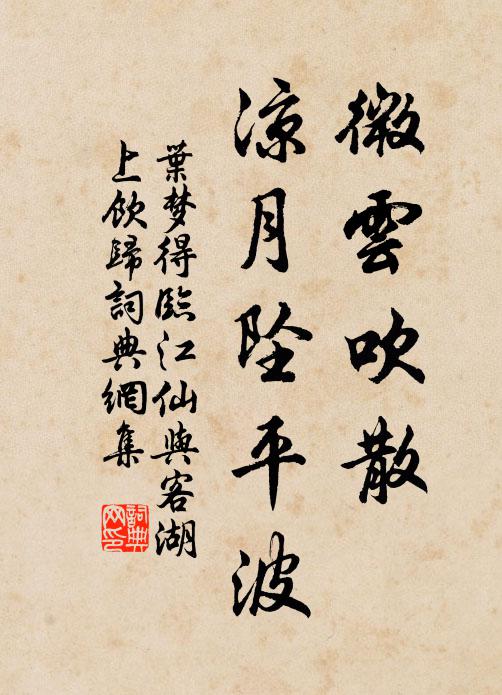 微雲吹散
涼月墜平波
葉梦得臨江仙與客湖
上飲歸詞典網集
詞典
网印